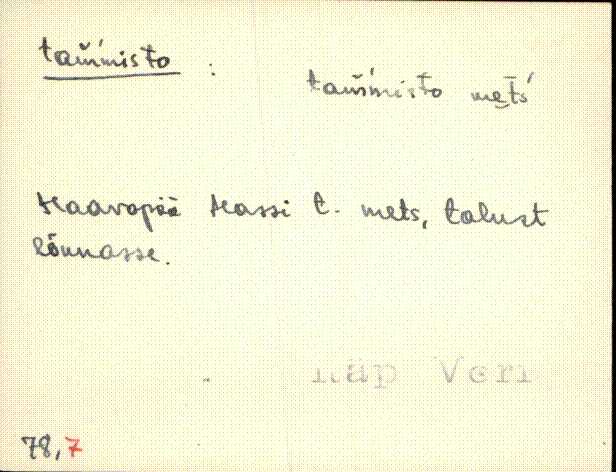 tam̆misto :
tam̆misto mets'
Haavapää Hassi t. mets, talust
lõunasse.
Räp Veri
78,7